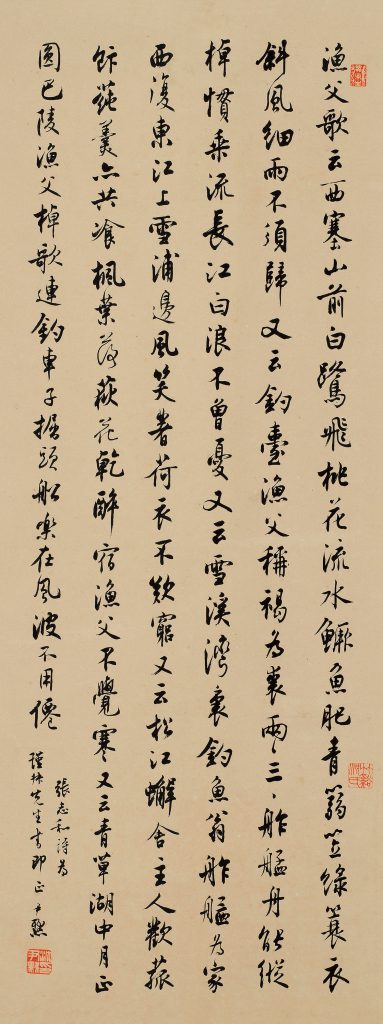 漁父歌云西塞山前白鷺飛桃花流水鱖魚肥青篛笠綠簑衣
斜風細雨不須歸又云釣臺漁父稱褐為裘兩兩三三舴艋舟能縱
棹慣乘流長江白浪不曾憂又云雪溪灣裏釣魚翁舴艋為家
西復東江上雪浦邊風笑著荷衣不歎窮又云松江蟹舍主人歡菰
飰蒓羹亦共飡楓葉落荻花乾醉宿漁父不覺寒又云青草湖中月正
圓巴陵漁父棹歌連釣車子掘頭船樂在風波不用僊
張志和詩為
先生書即正尹默